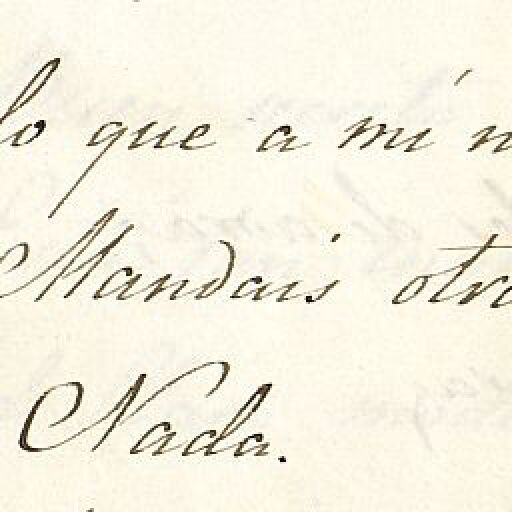 lo que a mí n
Mandais otra
Nada.